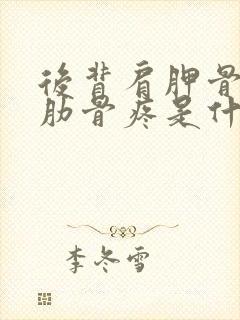 後背肩胛骨
肋骨疼是什
李冬雪